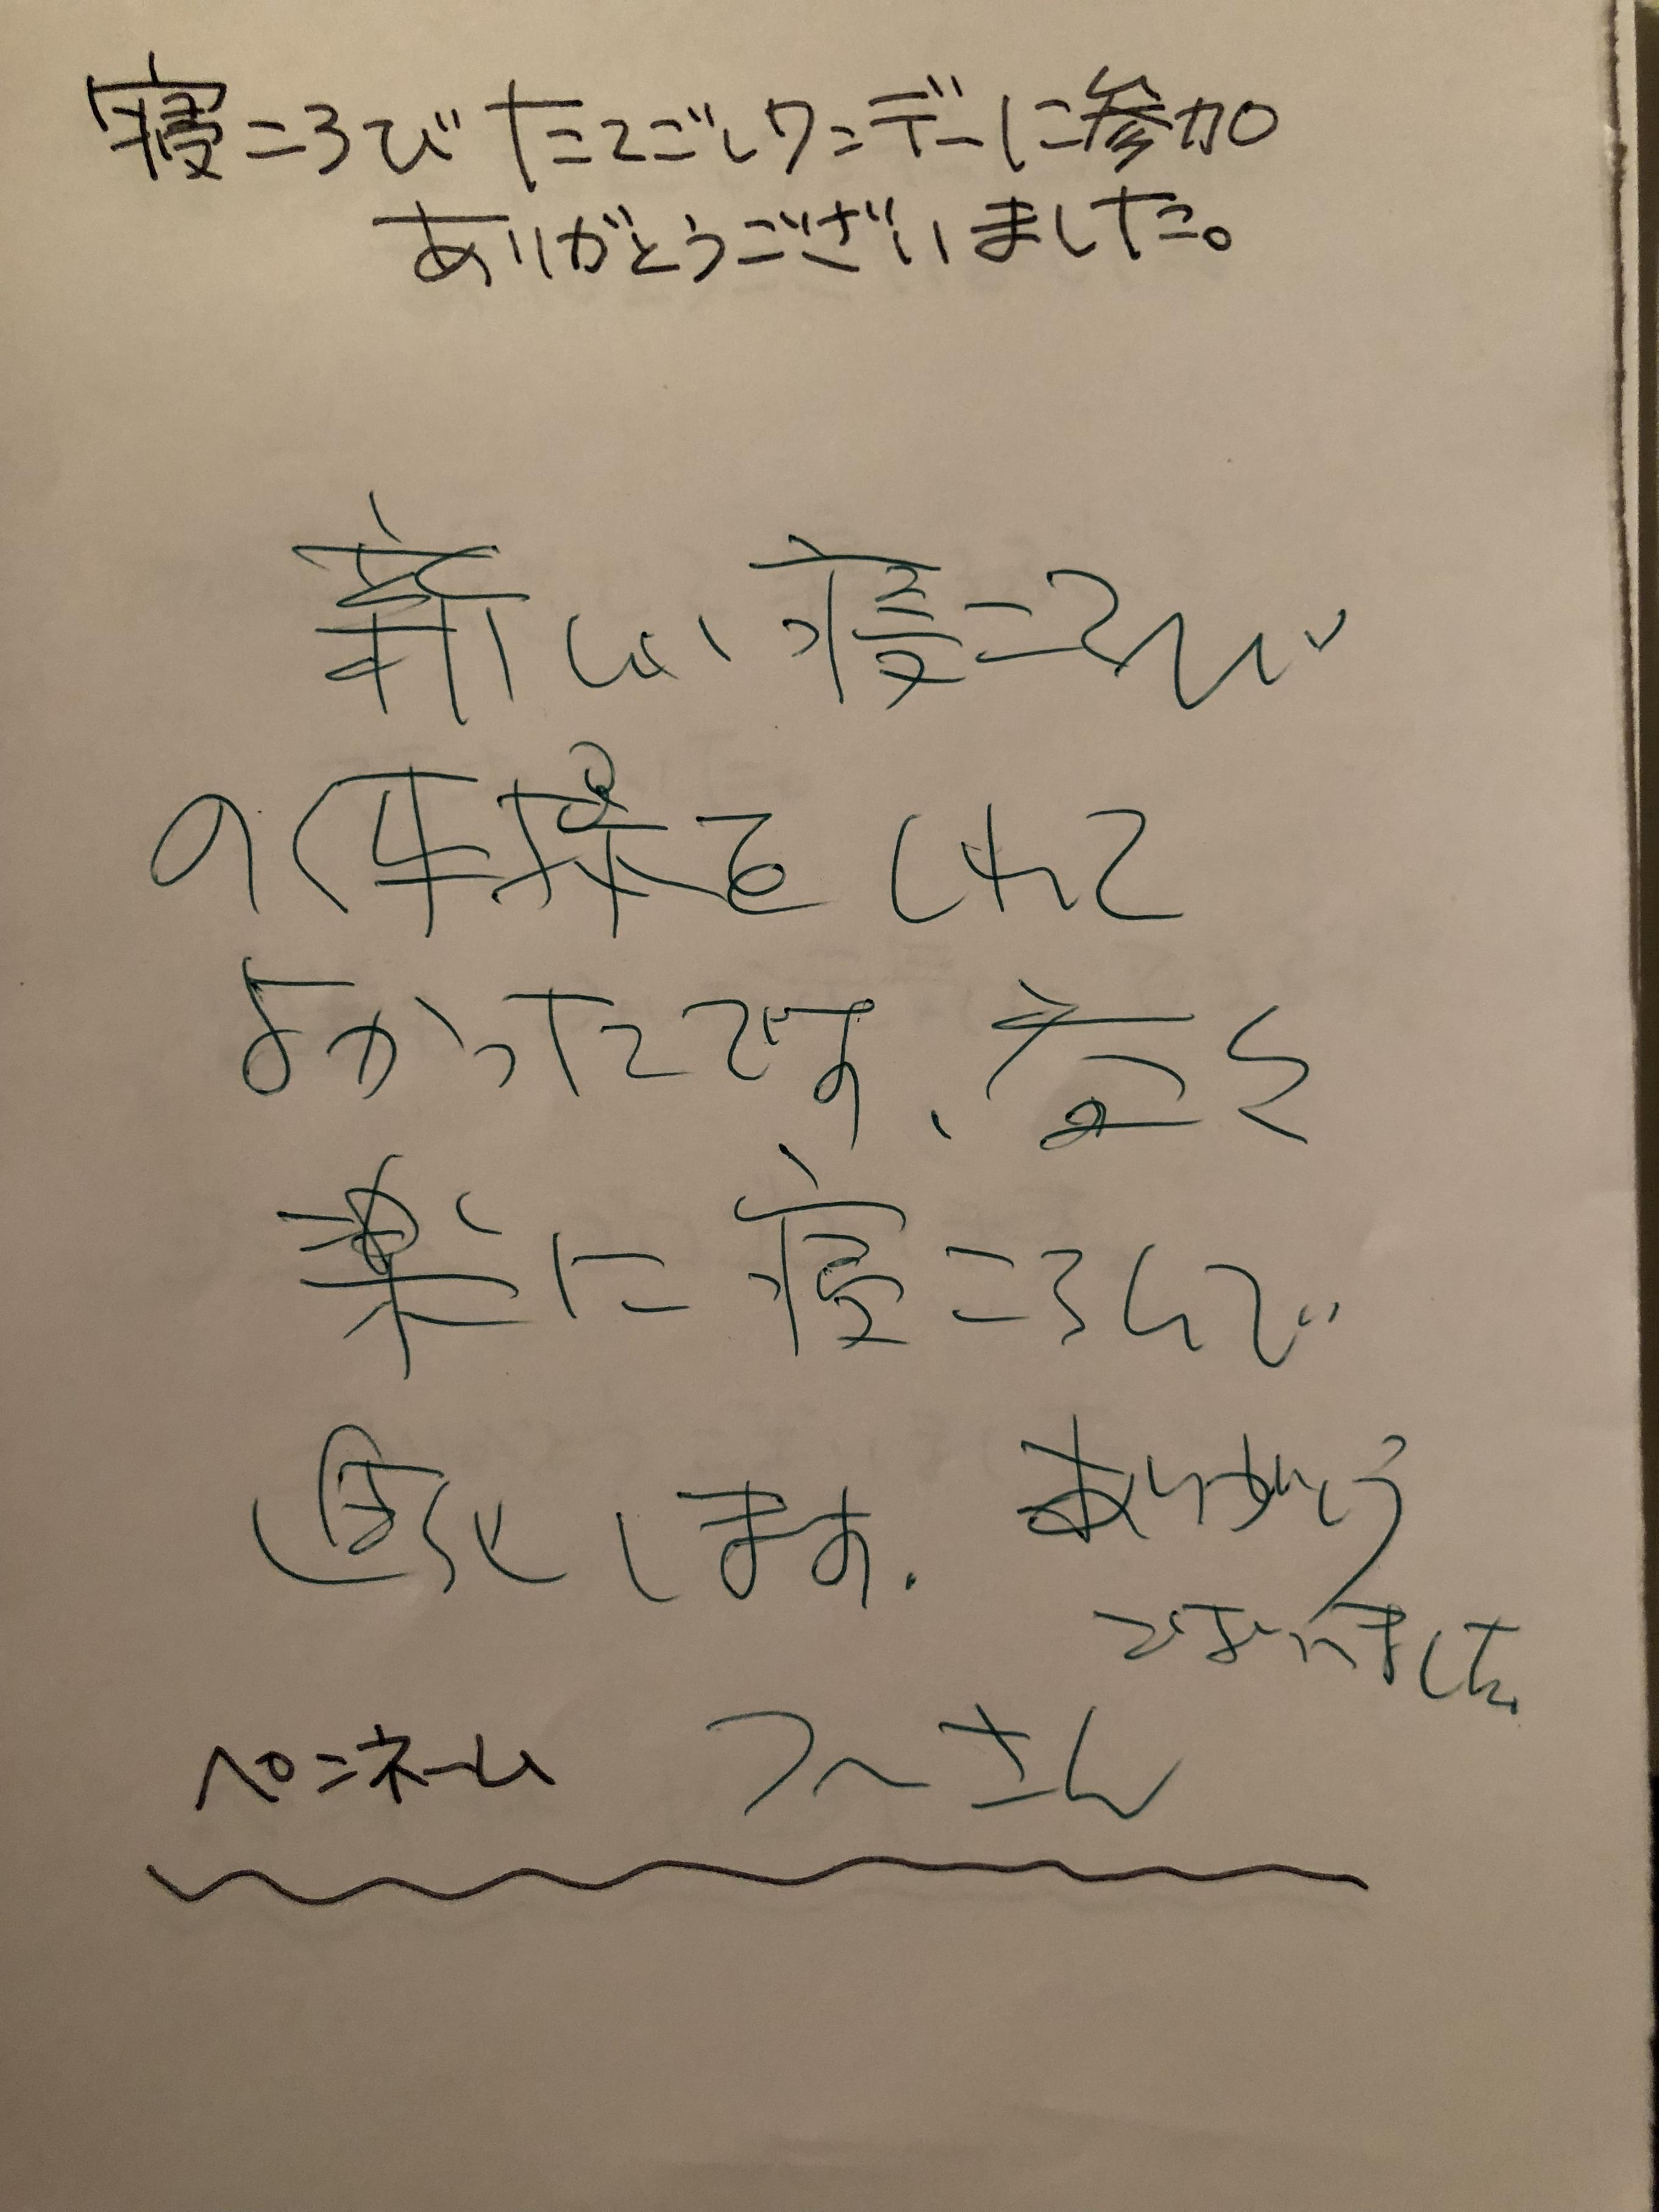 寝ころび たてごしワンデーに参加
ありがとうございました。
新しい寝ころび
の体操をしれて
よかったです、
楽に寝ころんで
します.
ありがとう
ございました.
ペンネーム つ〜さん